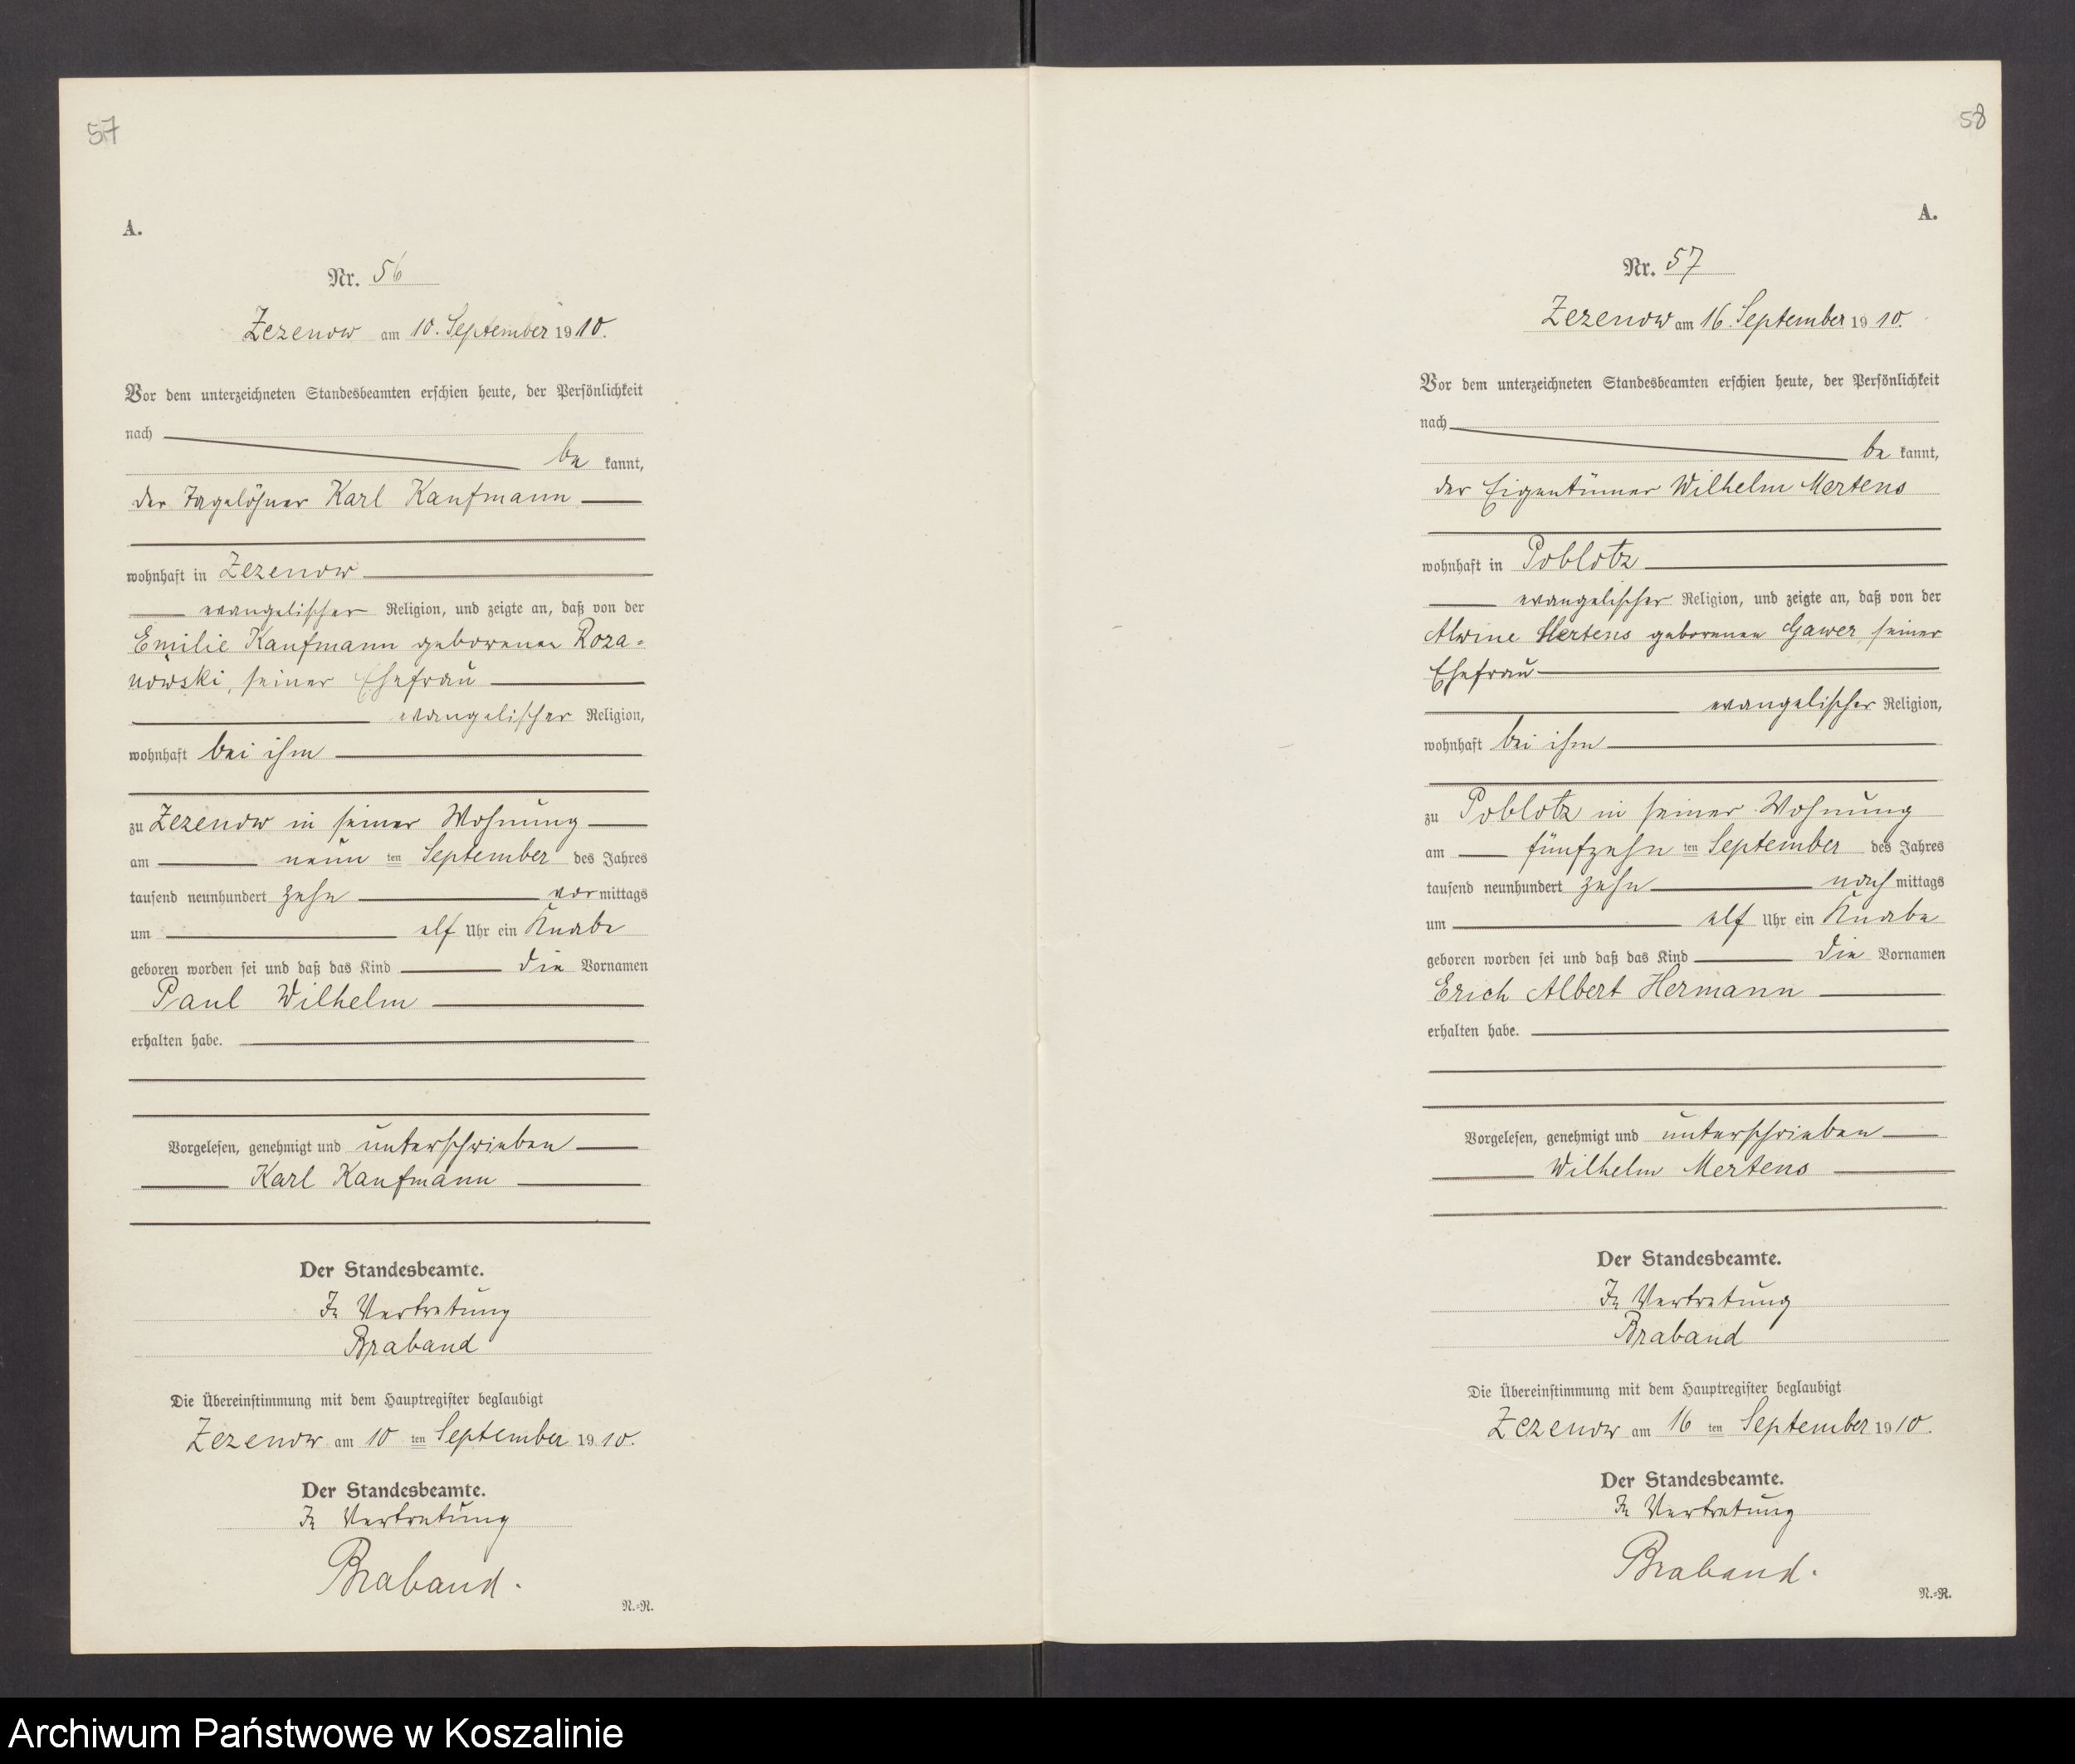 57
A.
Nr. 56
Zezenow am 10. September 1910.
Vor dem unterzeichneten Standesbeamten erschien heute, der Persönlichkeit
nach
be kannt,
der Tagelöhner Karl Kaufmann
wohnhaft in Zezenow
evangelischer Religion, und zeigte an, daß von der
Emilie Kaufmann geborenen Roza-
nowski, seiner Ehefrau
evangelischer Religion,
wohnhaft bei ihm
zu Zezenow in seiner Wohnung
am neun ten September des Jahres
tausend neunhundert zehn vormittags
um elf Uhr ein Knabe
geboren worden sei und daß das Kind die Vornamen
Paul Wilhelm
erhalten habe.
Vorgelesen, genehmigt und unterschrieben
Karl Kaufmann
Der Standesbeamte.
In Vertretung
Braband
Die Übereinstimmung mit dem Hauptregister beglaubigt
Zezenow am 10 ten September 1910.
Der Standesbeamte.
In Vertretung
Braband.
N.-R.
58
A.
Nr. 57
Zezenow am 16. September 1910.
Vor dem unterzeichneten Standesbeamten erschien heute, der Persönlichkeit
nach
be kannt,
der Eigentümer Wilhelm Mertens
wohnhaft in Poblotz
evangelischer Religion, und zeigte an, daß von der
Alwine Mertens geborenen Gawer, seiner
Ehefrau
evangelischer Religion,
wohnhaft bei ihm
zu Poblotz in seiner Wohnung
am fünfzehn ten September des Jahres
tausend neunhundert zehn nach mittags
um elf Uhr ein Knabe
geboren worden sei und daß das Kind die Vornamen
Erich Albert Hermann
erhalten habe.
Vorgelesen, genehmigt und unterschrieben
Wilhelm Mertens
Der Standesbeamte.
In Vertretung
Braband
Die Übereinstimmung mit dem Hauptregister beglaubigt
Zezenow am 16 ten September 1910.
Der Standesbeamte.
In Vertretung
Braband.
N.-R.
Archiwum Państwowe w Koszalinie